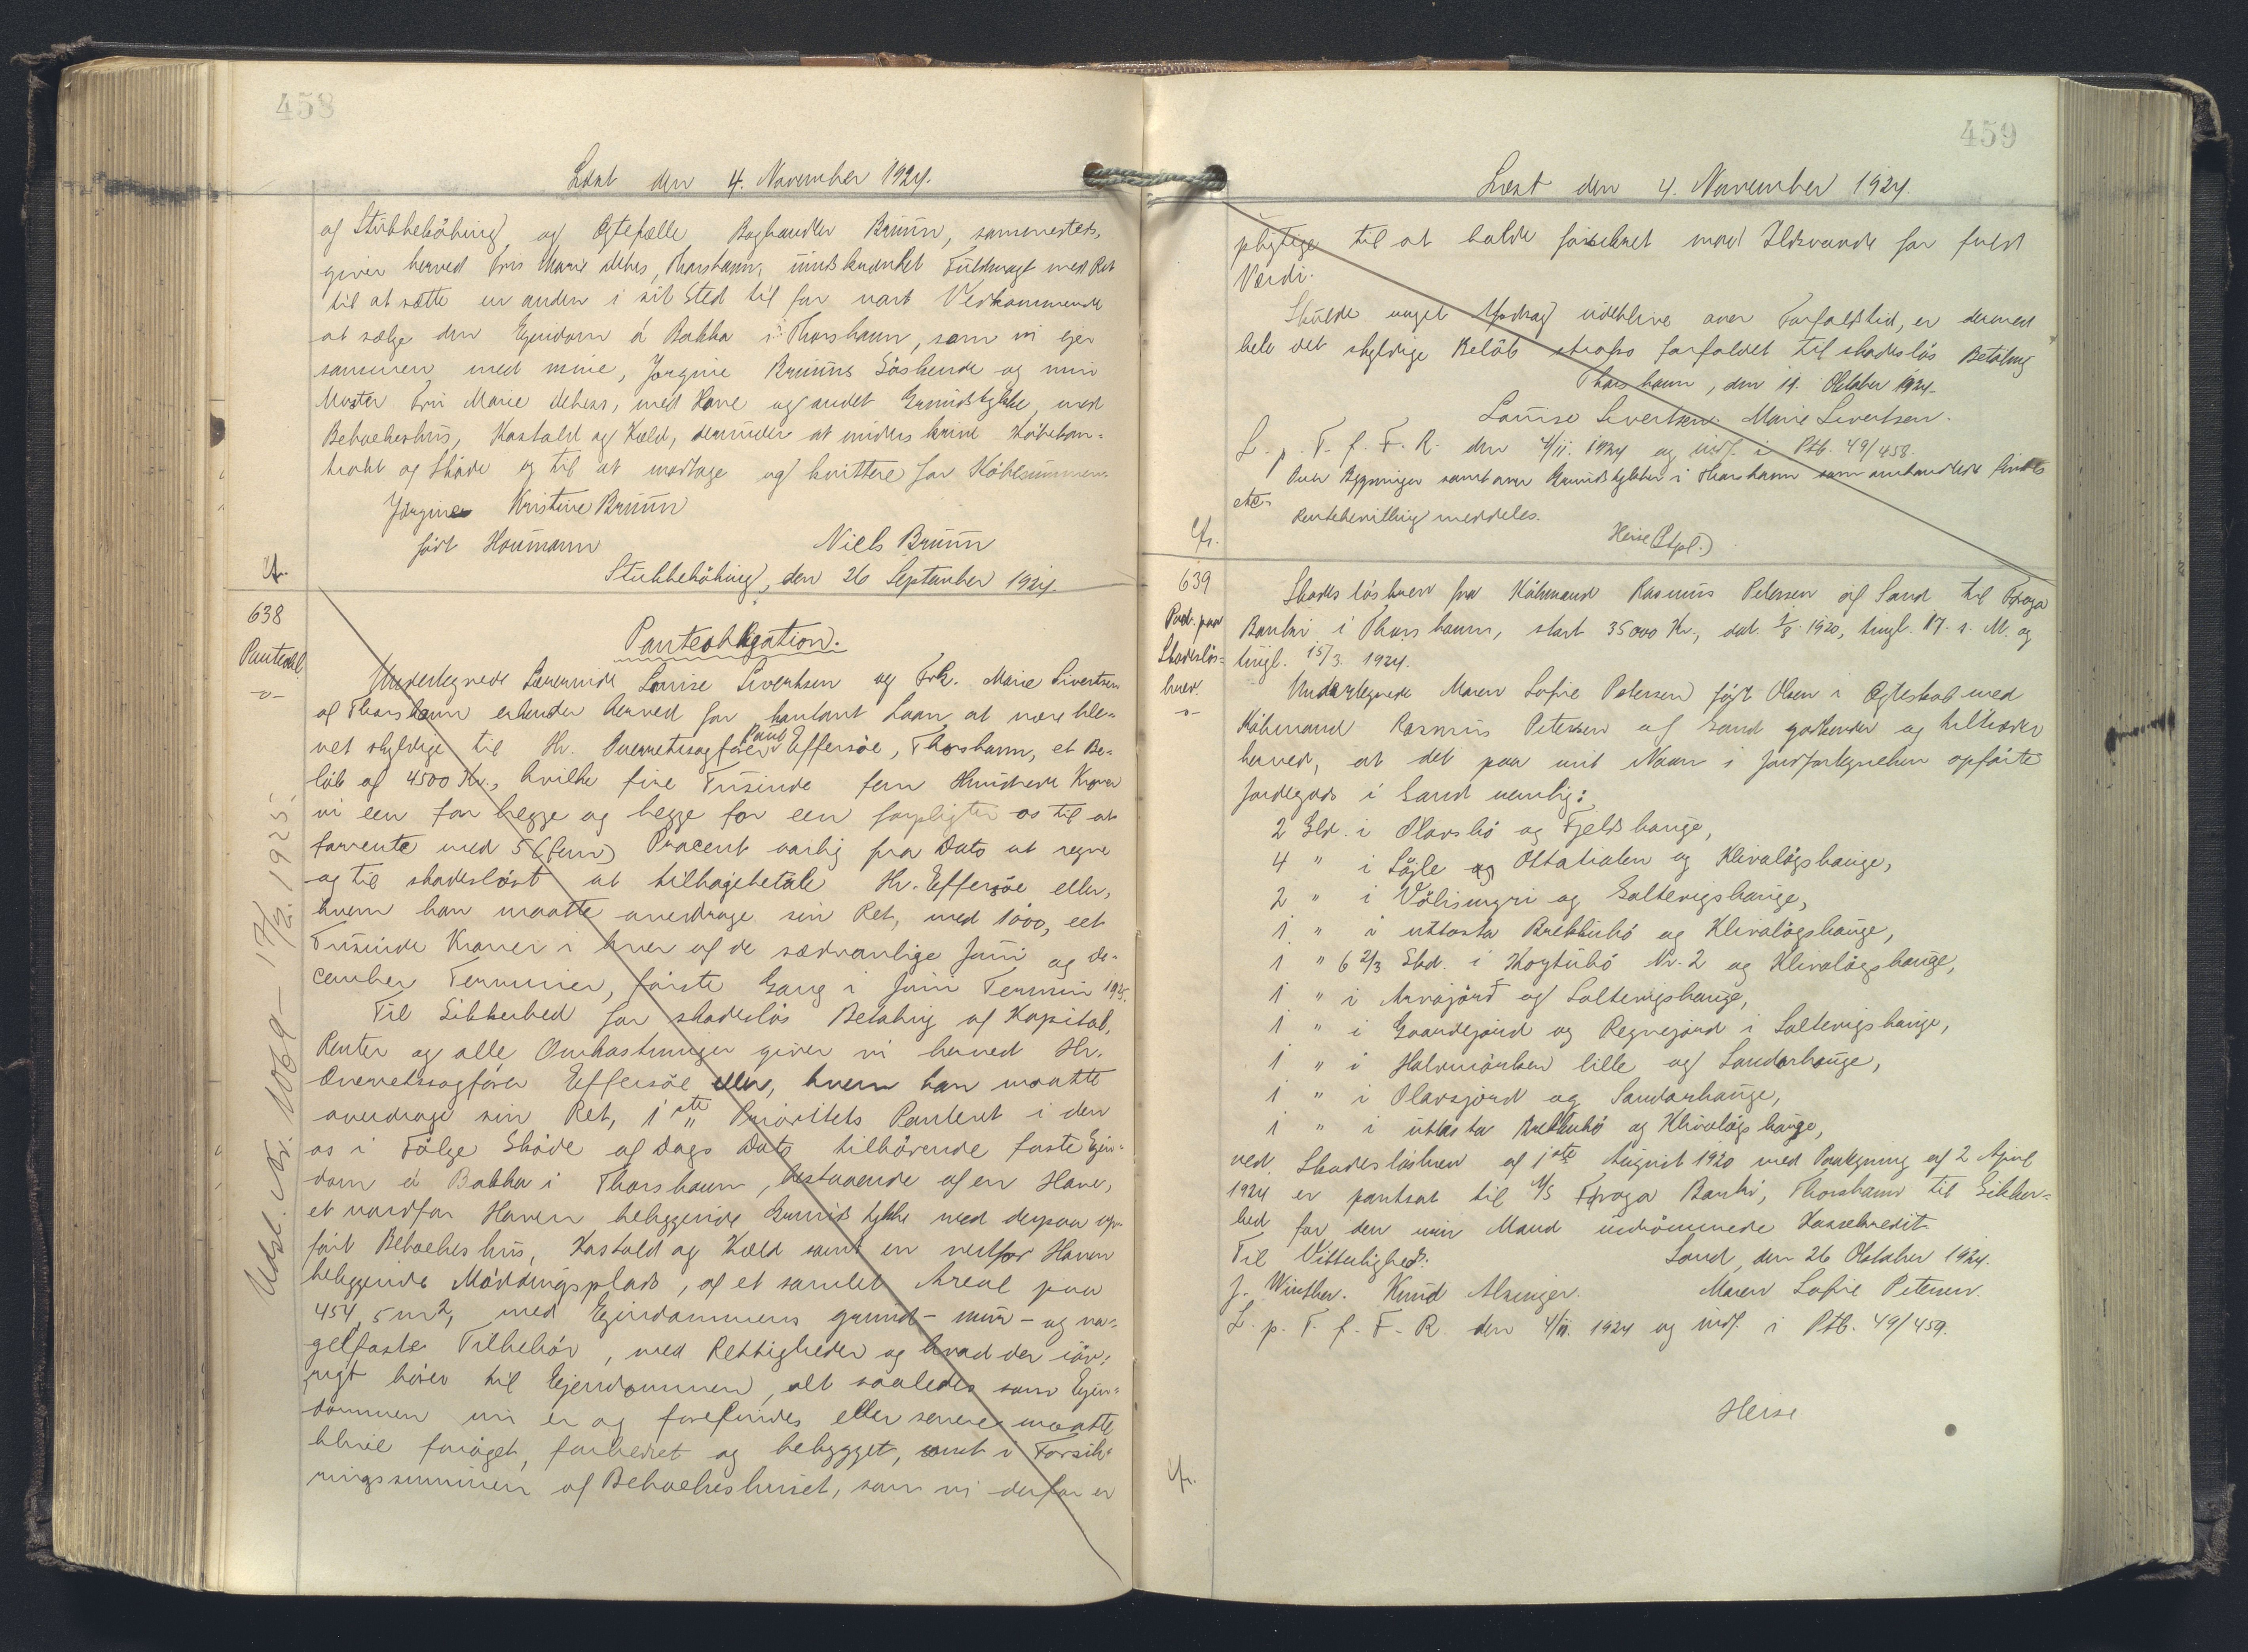 458
Læst den 4. November 1924.
af Stubbekøbing, og Ægtefælle Boghandler Bruun, sammesteds,
giver herved Frü Marie Debes, Thorshavn, uindskrænket Fuldmagt med Ret
til at sætte en anden i sit Sted til for vort Vedkommende
at sælge den Ejendom á Bakka i Thorshavn, som vi ejer
sammen med mine, Jørgine Bruuns Søskende og min
Moster Frü Marie Debess, med Have og andet Grundstykke, med
Beboelseshus, Kostald og Kæld, derunder at underskrive Købekon-
trakt og Skøde og til at modtage og kvittere for Købesummen.
Jørgine Kristine Bruun
født Houmann
Niels Bruun
Stubbekøbing, den 26 September 1924.
Cfr.
638
Panteobl.
Panteobligation.
Undertegnede Lærerinde Louise Sivertsen og Frk. Marie Sivertsen
af Thorshavn erkender herved for kontant Laan at være ble-
vet skyldige til Hr. Overretssagfører Poul Effersøe, Thorshavn, et Be-
løb af 4500 Kr., hvilke fire Tusinde fem Hundrede Kroner
vi een for begge og begge for een forpligter os til at
forrente med 5 (fem) Procent aarlig fra Dato at regne
og til skadesløst at tilbagebetale Hr. Effersøe eller,
hvem han maatte overdrage sin Ret, med 1000, eet
Tusinde Kroner i hver af de sædvanlige Juni og De-
cember Terminer, første Gang i Juni Termin 1925.
Til Sikkerhed for skadesløs Betaling af Kapital,
Renter og alle Omkostninger giver vi herved Hr.
Overretssagfører Effersøe eller, hvem han maatte
overdrage sin Ret, 1ste Prioritets Panteret i den
os i Følge Skøde af Dags Dato tilhørende faste Ejen-
dom á Bakka i Thorshavn, bestaaende af en Have,
et nordfor Haven beliggende Grundstykke med derpaa op-
ført Beboelseshus, Kostald og Kæld samt en vestfor Haven
beliggende Møddingsplads, af et samlet Areal paa
454,5 m2, med Ejendommens grund- mur- og na-
gelfaste Tilbehør, med Rettigheder og hvad der iøv-
rigt hører til Ejendommen, alt saaledes som Ejen-
dommen nu er og forefindes eller senere maatte
blive forøget, forbedret og bebygget, samt i Forsik-
ringssummen af Beboelseshuset, som vi derfor er
Udsl. Nr. 1069 - 17/12. 1925.
459
Læst den 4. November 1924.
pligtige til at holde forsikret mod Ildsvaade for fuld
Værdi.
Skulde noget Afdrag udeblive over Forfaldstid, er dermed
hele det skyldige Beløb straks forfaldet til skadesløs Betaling
Thorshavn, den 11. Oktober 1924.
Louise Sivertsen. Marie Sivertsen.
L. p. T. f. F. R. den 4/11. 1924 og indf. i Ptb. 49/458.
Over Bygninger samt over Grundstykker i Thorshavn som omhandlede findes
etc.
Rentebevilling meddeles.
Heise (Stpl.)
Cfr.
639
Paat. paa
Skadesløs-
brev.
Skadesløsbrev fra Købmand Rasmus Petersen af Sand til Føroya
Banki i Thorshavn, stort 35000 Kr., dat. 1/8. 1920, tingl. 17. s. M. og
tingl. 15/3. 1924.
Undertegnede Maren Sofie Petersen født Olsen i Ægteskab med
Købmand Rasmus Petersen af Sand godkender og tiltræder
herved, at det paa mit Navn i Jordfortegnelsen opførte
Jordegods i Sand nemlig:
2 Gld. i Olavsbø og Fjeldshauge,
4 " i Søjle og Ottatialen og Klivaløgshauge,
2 " i Vølismyri og Saltevigshauge,
1 " i uttasta Brekkubø og Klivaløgshauge,
1 " 6 2/3 Skd. i Koytubø Nr. 2 og Klivaløgshauge,
1 " i Arvajørd og Saltevigshauge,
1 " i Gaardejørd og Regnejørd i Saltevigshauge,
1 " i Halvmørken lille og Sandarhauge,
1 " i Olavsjørd og Sandarhauge,
1 " i uttasta Brekkubø og Klivaløgshauge,
ved Skadesløsbrev af 1ste August 1920 med Paategning af 2 April
1924 er pantsat til A/S Føroya Banki, Thorshavn til Sikker-
hed for den min Mand indrømmede Kassekredit
Til Vitterlighed:
Sand, den 26 Oktober 1924.
J. Winther. Knud
Maren Sofie Petersen.
L. p. T. f. F. R. den 4/11. 1924 og indf. i Ptb. 49/459.
Heise
Cfr.